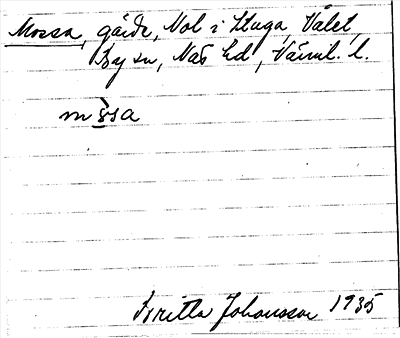 Mossa, gärde, Nol i Stuga, Vålet,
By sn, Näs hd, Värml. l.
mo̊sa
Britta Johansson 1935